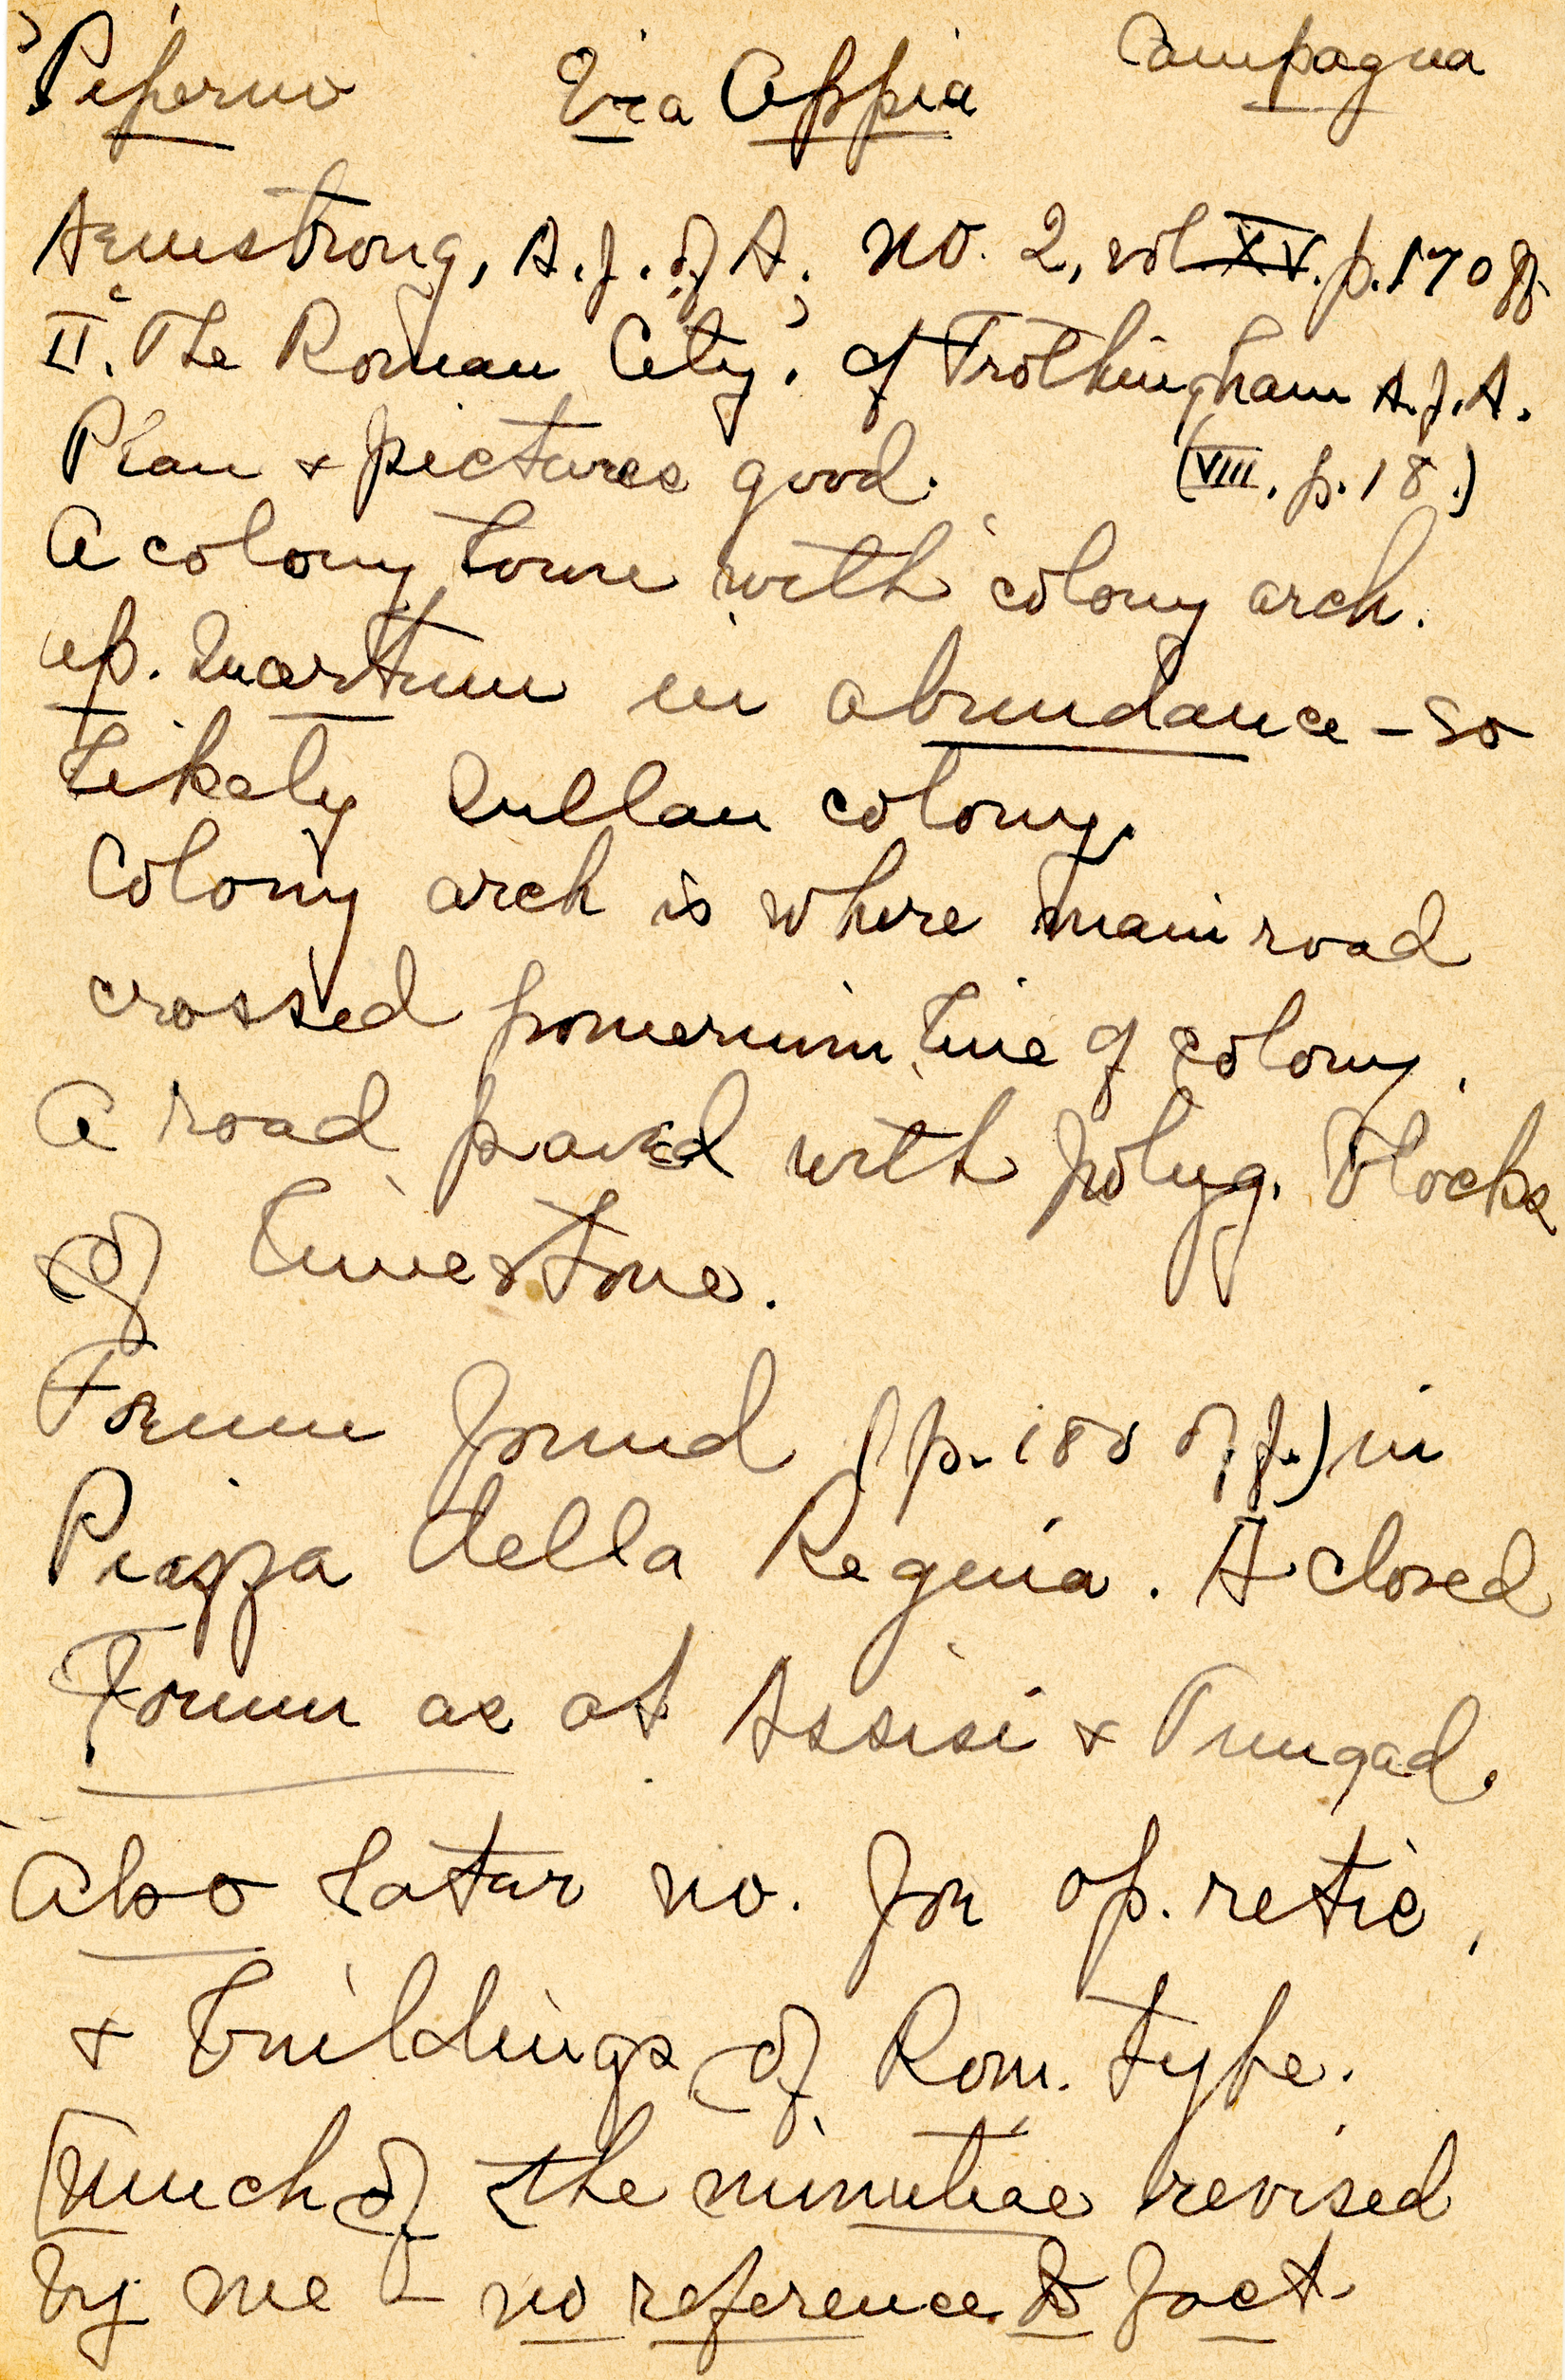 Piperno Via Appia Campagna
Armstrong, A.J. of A. no. 2, vol XV. p. 170 ff.
II. The Roman City. cf Frothingham A.J.A.
Plan & pictures good. (VIII, p. 18.)
A colony town with colony arch.
op. quartum in abundance - so
likely Sullan colony.
Colony arch is where main road
crossed pomerium line of colony.
A road paved with polyg. blocks
of limestone.
Forum found (p. 180 of f.) in
Piazza della Regina. A closed
Forum as at Assisi & Timgad.
Also later no. for op. retic,
& buildings of Rom. type.
[Much of the minutiae revised
by me - no reference to fact.